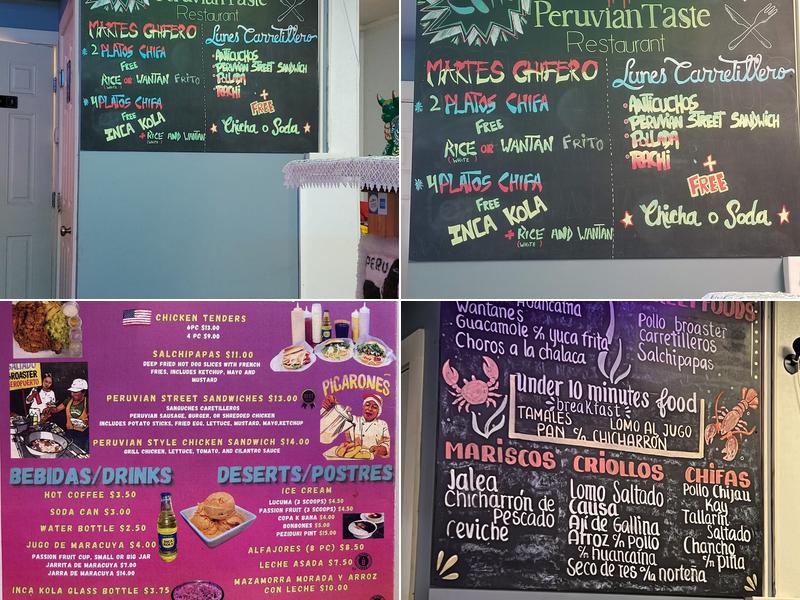 Peruvian Taste
Restaurant
MARTES CHIFERO
* 2 PLATOS CHIFA
FREE
RICE OR WANTAN FRITO
(WHITE)
* 4 PLATOS CHIFA
FREE
INCA KOLA
+ RICE AND WANTAN
(WHITE)
Lunes Carretillero
• ANTICUCHOS
• PERUVIAN STREET SANDWICH
• PollADA
• RACHI
+
FREE
Chicha o Soda
PERU
Peruvian Taste
Restaurant
MARTES CHIFERO
* 2 PLATOS CHIFA
FREE
RICE OR WANTAN FRITO
(WHITE)
* 4 PLATOS CHIFA
FREE
INCA KOLA
+ RICE AND WANTAN
(WHITE)
Lunes Carretillero
• ANTICUCHOS
• PERUVIAN STREET SANDWICH
• PollADA
• RACHI
+
FREE
Chicha o Soda
CHICKEN TENDERS
6PC $13.00
4 PC $9.00
SALCHIPAPAS $11.00
DEEP FRIED HOT DOG SLICES WITH FRENCH
FRIES, INCLUDES KETCHUP, MAYO AND
MUSTARD
SALTADO
BROASTER
AEROPUERTO
PERUVIAN STREET SANDWICHES $13.00
SANGUCHES CARETILEROS
PERUVIAN SAUSAGE, BURGER, OR SHREDDED CHICKEN
INCLUDES POTATO STICKS, FRIED EGG, LETTUCE, MUSTARD, MAYO,KETCHUP
PICARONES
PERUVIAN STYLE CHICKEN SANDWICH $14.00
GRILL CHICKEN, LETTUCE, TOMATO, AND CILANTRO SAUCE
BEBIDAS/DRINKS
HOT COFFEE $3.50
SODA CAN $3.00
WATER BOTTLE $2.50
JUGO DE MARACUYA $4.00
PASSION FRUIT CUP, SMALL OR BIG JAR
JARRITA DE MARACUYA $7.00
JARRA DE MARACUYA $14.00
INCA KOLA GLASS BOTTLE $3.75
DESERTS/POSTRES
ICE CREAM
LUCUMA (3 SCOOPS) $4.50
PASSION FRUIT (3 SCOOPS) $4.50
COPA K BANA $4.00
BONBONES $5.00
PEZIDURI PINT $15.00
ALFAJORES (8 PC) $8.50
LECHE ASADA $7.50
MAZAMORRA MORADA Y ARROZ
CON LECHE $10.00
Huancaina
Wantanes
Guacamole c/n yuca frita
Choros a la chalaca
STREET FOODS
Pollo broaster
Carretilleros
Salchipapas
Under 10 minutes food
breakfast
TAMALES LOMO AL JUGO
PAN c/n CHICHARRÓN
MARISCOS
Jalea
Chicharrón de
Pescado
Ceviche
CRIOLLOS
Lomo Saltado
Causa
Ají de Gallina
Arroz c/n Pollo
c/n huancaina
Seco de res c/a norteña
CHIFAS
Pollo Chijau
Kay
Tallarin
Saltado
Chancho
c/n piña